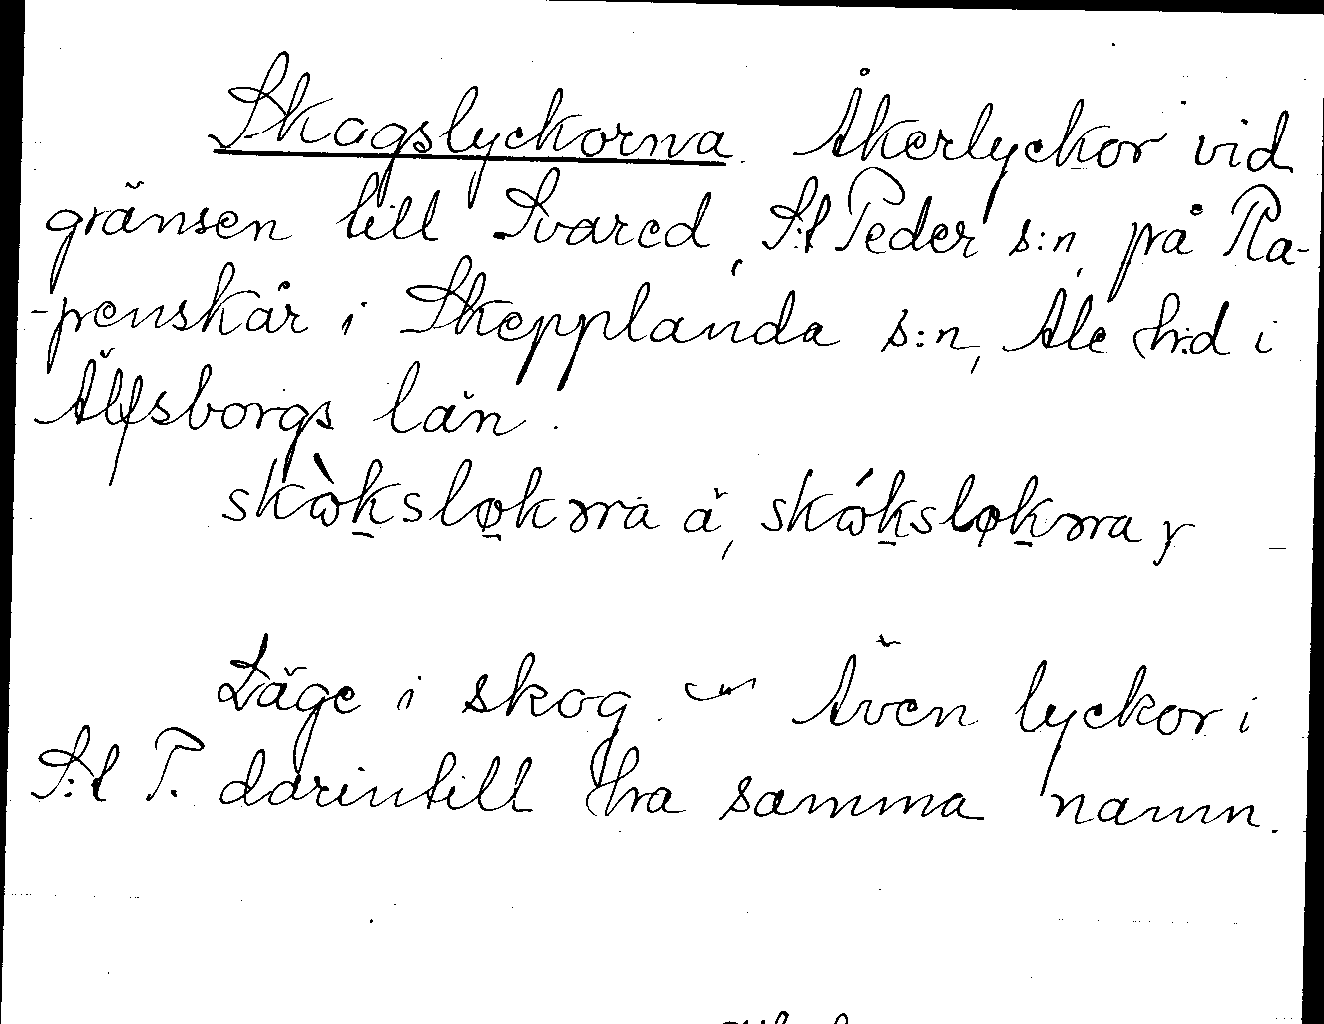 Skogslyckorna. Åkerlyckor vid
gränsen till Svared, S:t Peder s:n, på Ra-
-penskår i Skepplanda s:n, Ale h:d i
Älfsborgs län.
skὼkslø̱kɔrna ä, skώkslø̱kɔrna y
Läge i skog. Även lyckor i
S:t P. därintill ha samma namn.